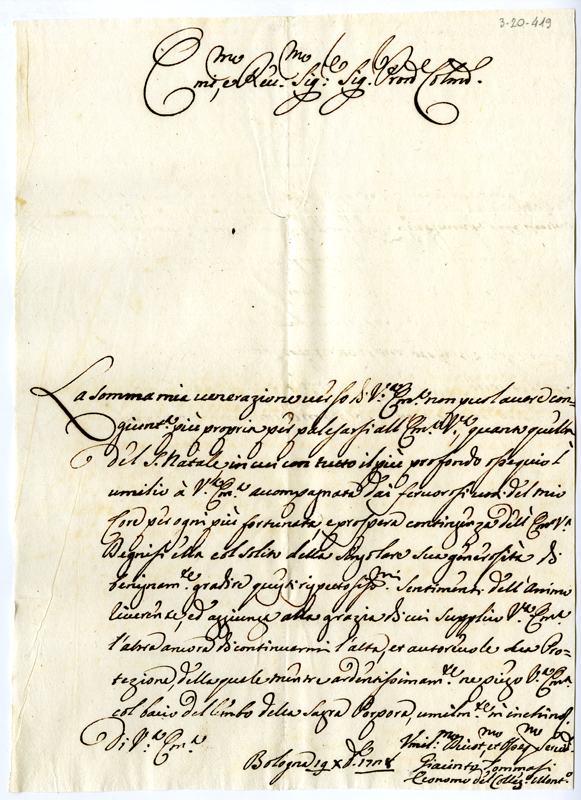 3-20-419
Em.mo e Reu.mo Sig.re Sig. Pron.e Colmo.
La somma mia uenerazione uerso di V.ra Em.a non puol auere con-
giunt.a più propria per palesarsi all'Em.a V.ra, quanto quella
del S. Natale in cui con tutto il più profondo ossequio l'
umilio à V.ra Em.a acompagnata dai feruorosi uoti del mio
Core per ogni più fortunata, e prospera contingenza dell'Em.a V.a
Degnisi ella col solito della singolare sua generosità di
benignam.te gradire questi rispetosiss.mi sentimenti dell'Animo
riuerente, ed aggiunga alla grazia di cui supplico V.ra Em.a
l'altra ancora di continuarmi l'alta, et autoreuole sua Pro-
tezione, della quale mentre ardentissimam.te ne priego V.ra Em.a
col bacio del lembo della Sagra Porpora, umilm.te m'inchino
Di V.ra Em.a
Bologna 19 Xbre
Umil.mo Diuot.mo et Osseq.mo Seruid.
Giacinto Tommasi
Economo del Colleg.o Mont.o